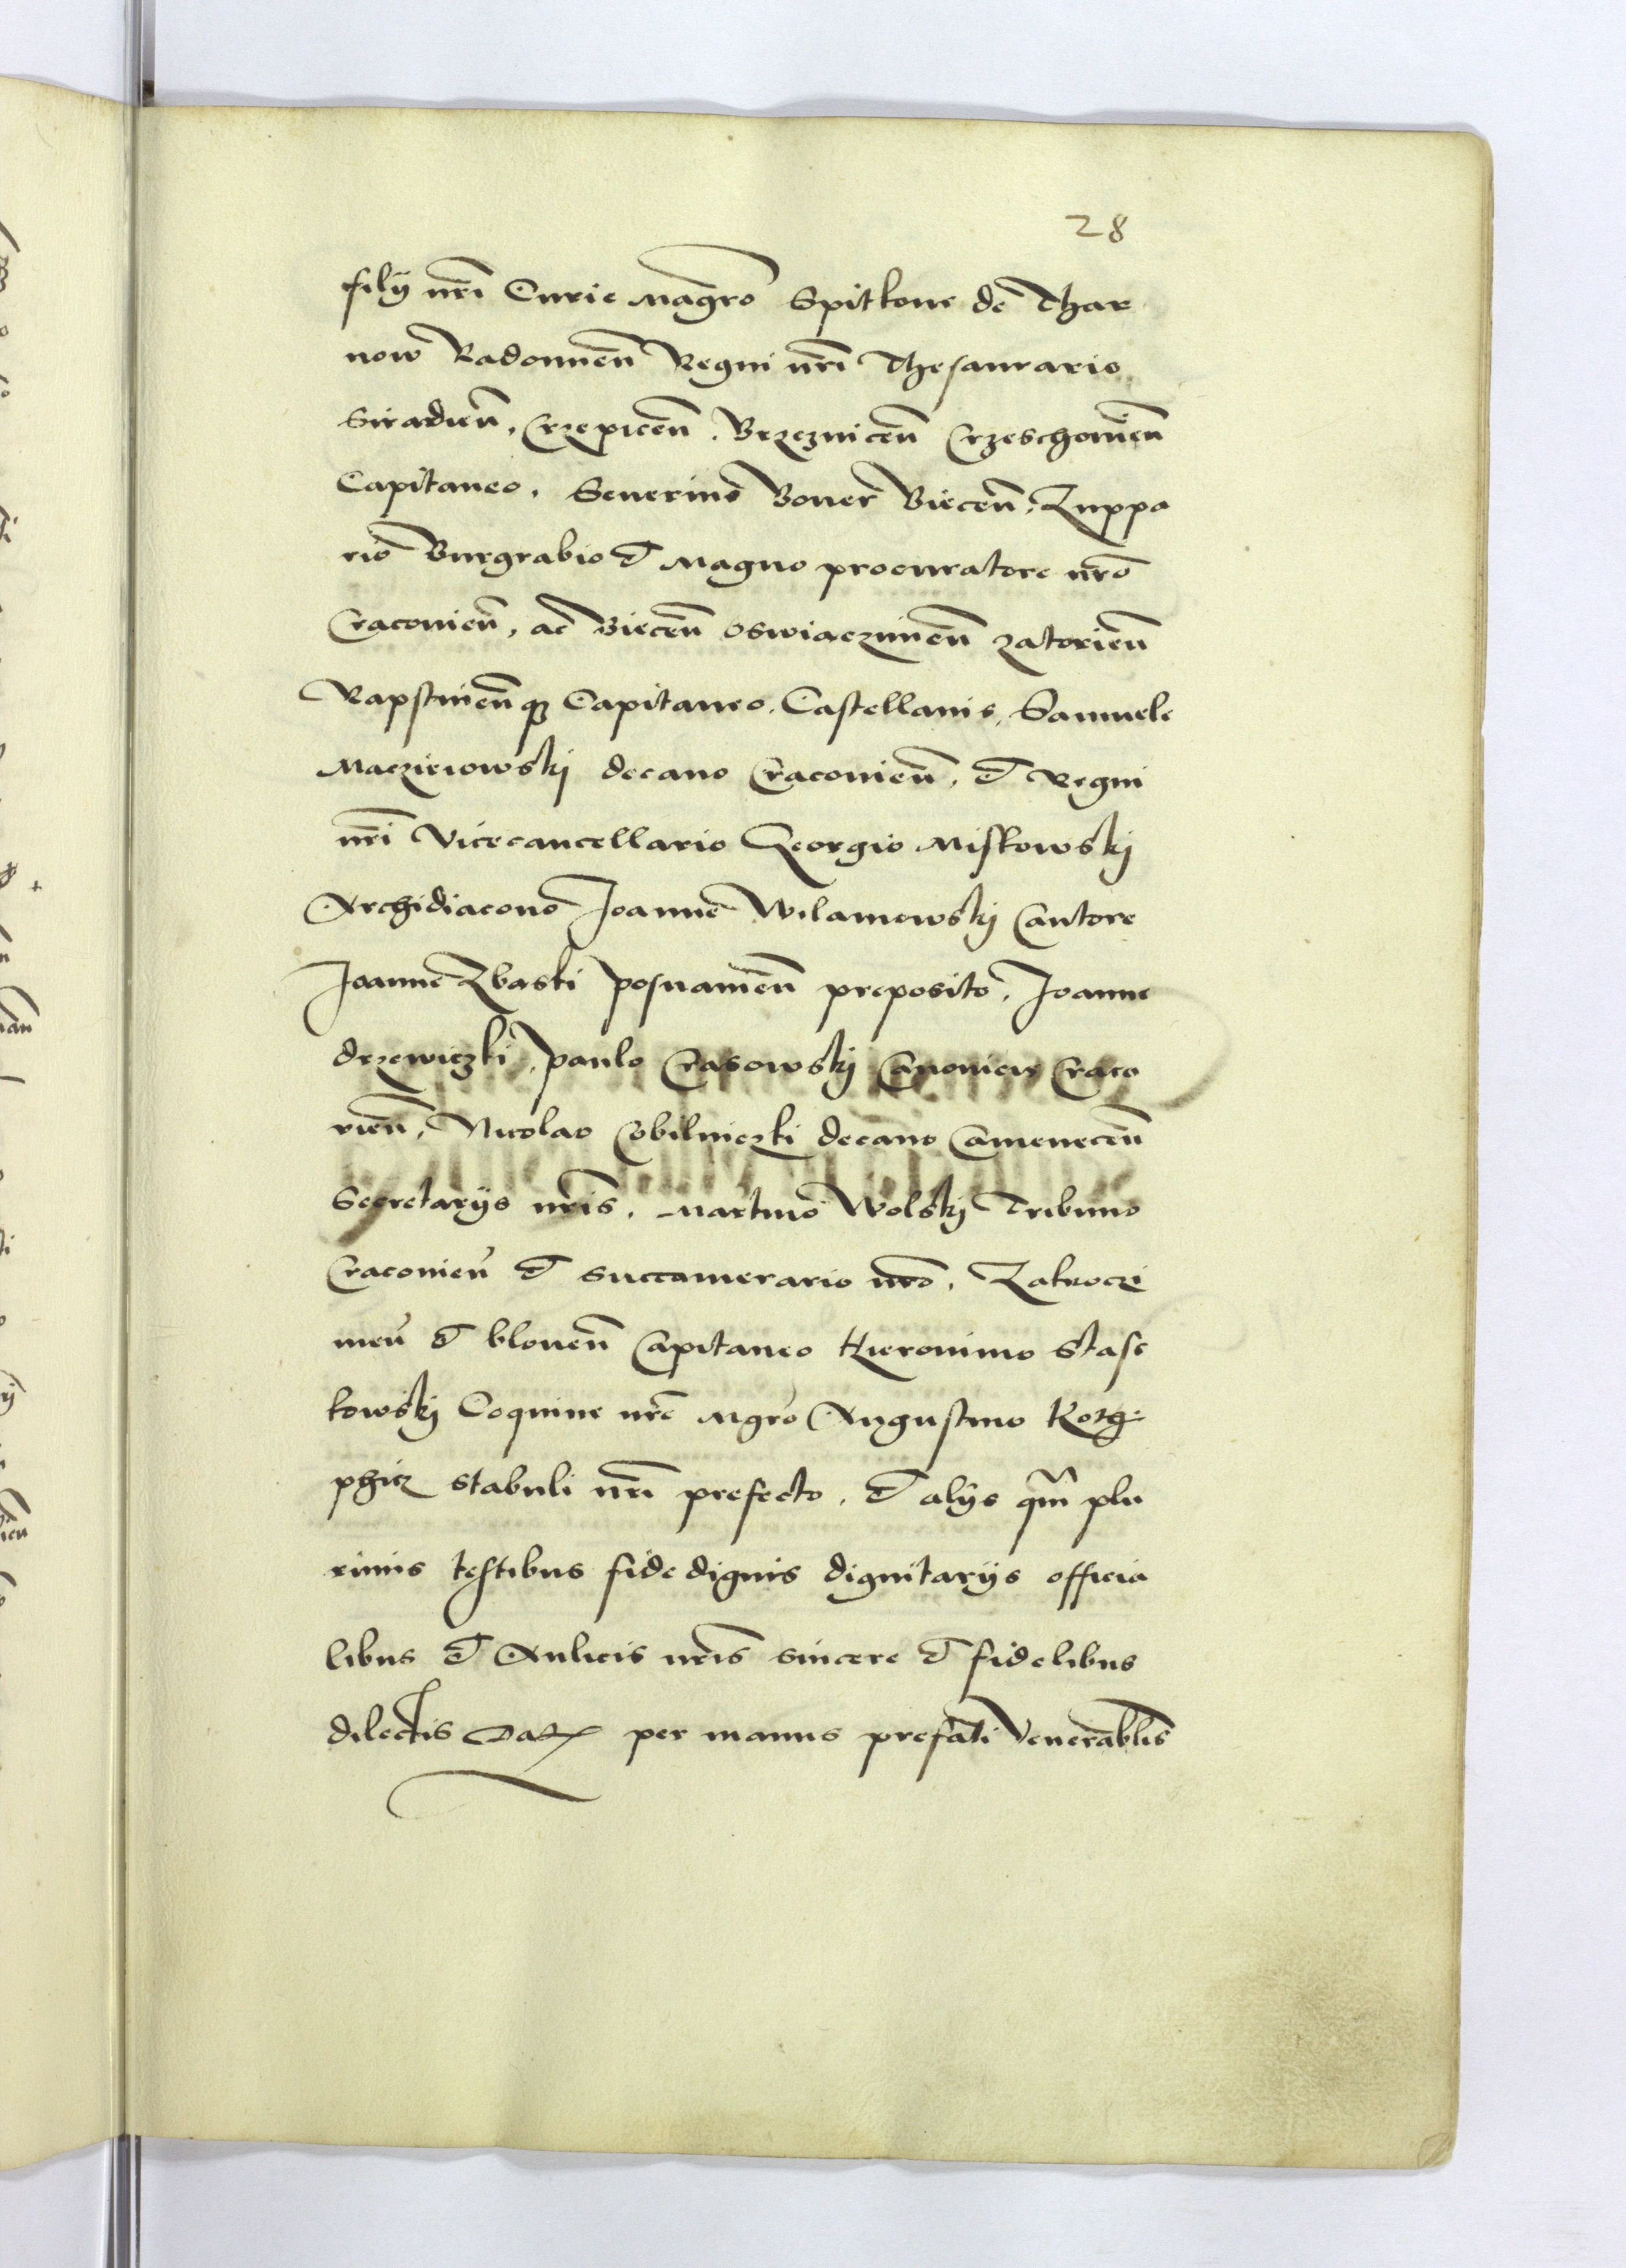 28
filÿ nr̄i Curie Magr̄o Spitkone de Thar
now Radomien̄ Regni nr̄i Thesaurario
Siradien̄, Crzepicen̄, Brzeznicen̄ Crzeschowien̄
Capitaneo, Seuerino Boner Biecen̄, Zuppa
rio Burgrabio et Magno procuratore nr̄o
Cracouien̄, ac Biecen̄ Oswiaczimen̄ Zatorien̄
Rapstinen̄q3 Capitaneo, Castellanis, Samuele
Macziewowskj decano Cracouien̄, et Regni
nr̄i Vicecancellario Georgio Miskowskj
Archidiacono Joanne Wilamowskj Cantore
Joanne Zbaski posnanien̄ preposito, Joanne
drzewiczki, paulo Crasowskj Canonicis Craco
vien̄, Nicolao Cobilniczki decano Camenecen̄
Secretarijs nr̄is, Martino Wolskj Tribuno
Cracouien̄ et succamerario nr̄o, Zakroczi
men̄ et blonen̄ Capitaneo Hieronimo Stase
kowskj Coquine nr̄e Mgr̄o Augustino Kotg:
phicz stabuli nr̄i prefecto, et alijs qm̄ plu
rimis testibus fide dignis dignitarijs officia
libus et Aulicis nr̄is sincere et fidelibus
dilectis Dat per manus prefati Venerablis̄